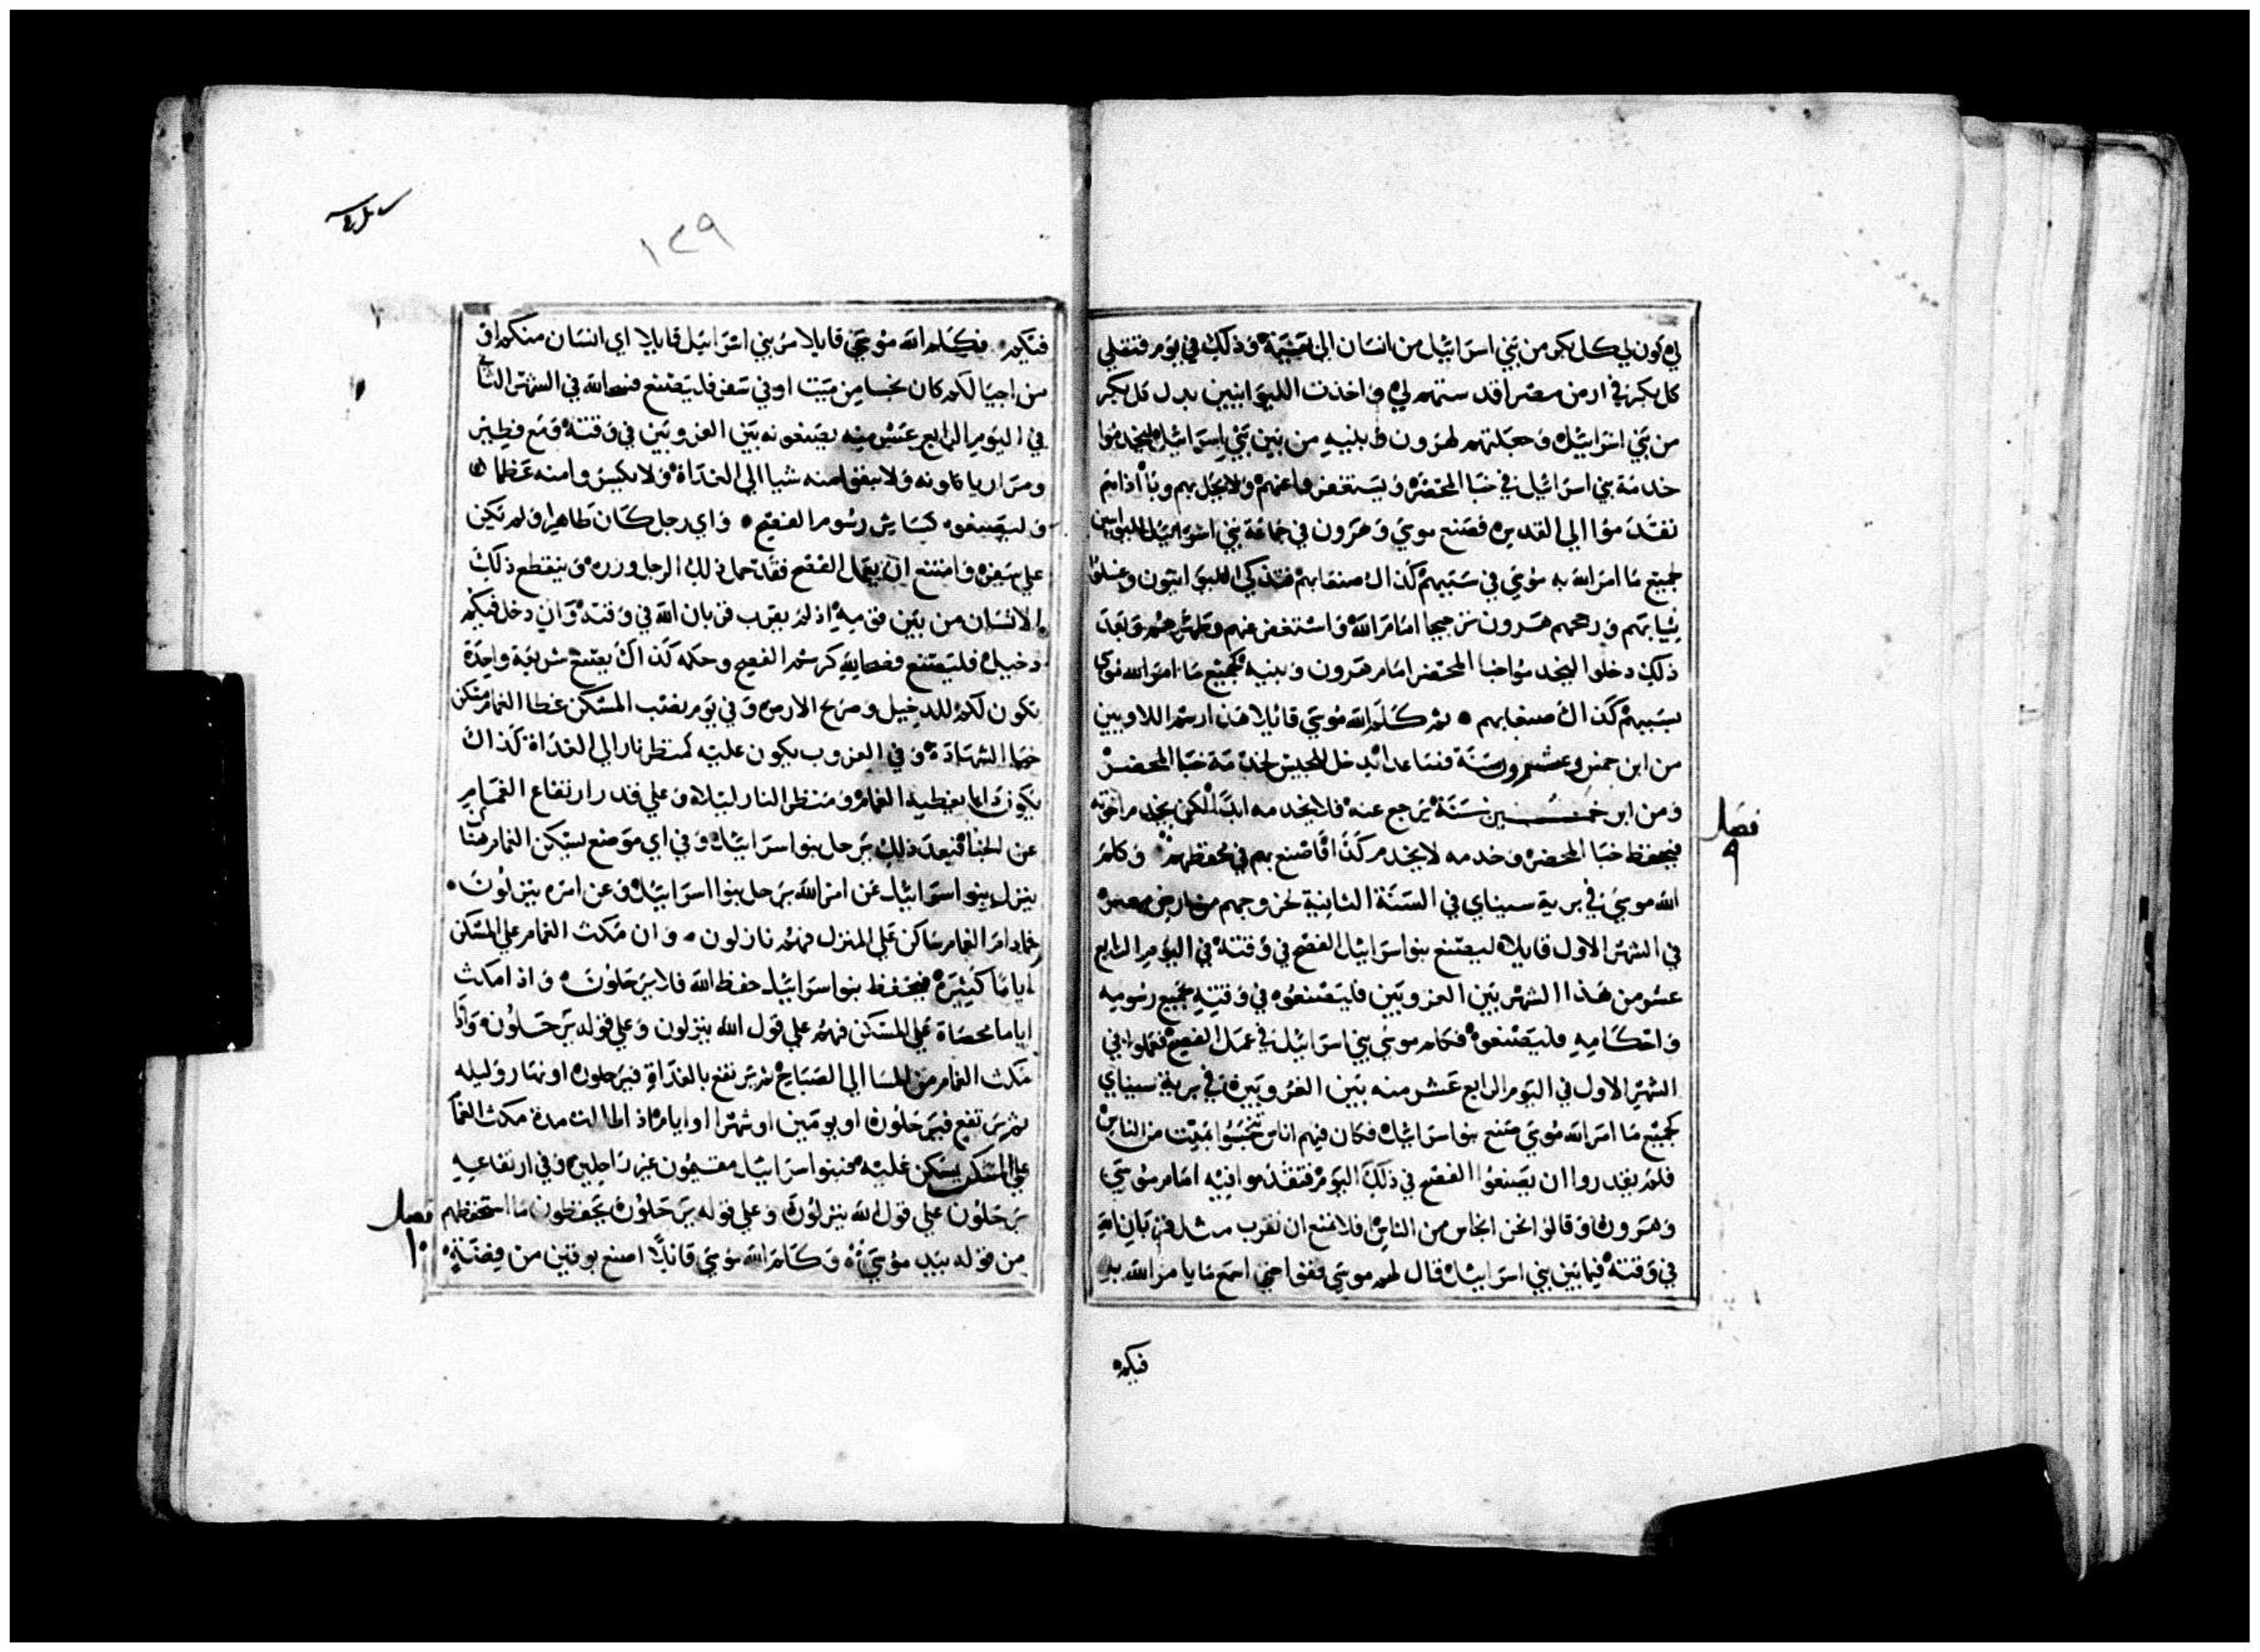 ليكون لي كل بكر من بني اسرائيل من انسان الى بهيمة وذلك في يوم قتلي
كل بكر في ارض مصر اقدستهم لي واخذت الليوانيين بدل كل بكر
من بني اسرائيل وجعلتهم لهرون وبنيه من بين بني اسرائيل ليخدموا
خدمة بني اسرائيل في خبا المحضر وليستغفروا عنهم ولا يحل بهم وبأ اذا هم
تقدموا الى القدس فصنع موسى وهرون في جماعة بني اسرائيل الليوانيين
جميع ما امر الله به موسى في سببهم كذاك صنعا بهم فتذكى الليوانيون وغسلوا
ثيابهم ورحمهم هرون ترحيما امام الله واستغفر عنهم وطهرهم وبعد
ذلك دخلوا ليخدموا خبا المحضر امام هرون وبنيه كجميع ما امر الله موسى
بسببهم كذاك صنعا بهم ثم كلم الله موسى قائلا هذا رسم اللاويين
من ابن خمس وعشرون سنة فصاعدا يدخل للجيش لخدمة خبا المحضر
ومن ابن خمسين سنة يرجع عنه فلا يخدمه ابدا لكن يخدم اخوته
فيحفظ خبا المحضر وخدمه لا يخدم كذا فاصنع بهم في محفظهم وكلم
فصل ٩
الله موسى في برية سيناي في السنة الثانية لخروجهم من ارض مصر
في الشهر الاول قايلا ليصنع بنو اسرائيل الفصح في وقته في اليوم الرابع
عشر من هذا الشهر بين الغروبين فليصنعوه في وقته بجميع رسومه
واحكامه فليصنعوه فكلم موسى بني اسرائيل في عمل الفصح فعملوا في
الشهر الاول في اليوم الرابع عشر منه بين الغروبين في برية سيناي
كجميع ما امر الله موسى صنع بنو اسرائيل فكان فيهم اناس تنجسوا بميت من الناس
فلم يقدروا ان يصنعوا الفصح في ذلك اليوم فتقدموا فيه امام موسى
وهرون وقالوا نحن انجاس من الناس فلا نمنع ان نقرب مثل قربان الله
في وقته فيما بين بني اسرائيل قال لهم موسى قفوا حتى اسمع ما يامر الله به
فيكم
١٢٩
فيكم فكلم الله موسى قايلا مر بني اسرائيل قايلا اي انسان منكم او
من اجيالكم كان نجسا من ميت او في سفر فليصنع فصحا لله في الشهر الثاني
في اليوم الرابع عشر منه يصنعونه بين الغروبين في وقته ومع فطير
ومرار ياكلونه ولا يبقوا منه شيا الى الغداة ولا يكسروا منه عظما
وليصنعوه كساير رسوم الفصح واي رجل كان طاهرا ولم يكن
على سفر وامتنع ان يعمل الفصح فقد حمل ذلك الرجل وزره وينقطع ذلك
الانسان من بين قومه اذ لم يقرب قربان الله في وقته وان دخل فيكم
دخيل فليصنع فصحا لله كرسم الفصح وحكمه كذاك يصنع شريعة واحدة
تكون لكم للدخيل وصريح الارض وفي يوم نصب المسكن غطا الغمام مسكن
خبا الشهادة وفي الغروب يكون عليه كمنظر نار الى الغداة كذاك
يكون دايما يغطيه الغمام ومنظر النار ليلا وعلى قدر ارتفاع الغمام
عن الخبا فبعد ذلك يرحل بنو اسرائيل وفي اي موضع يسكن الغمام هناك
ينزل بنو اسرائيل عن امر الله يرحل بنوا اسرائيل وعن امره ينزلون
فمادام الغمام ساكن على المنزل فهم نازلون وان مكث الغمام على المسكن
اياما كثيرة فيحفظ بنو اسرائيل حفظ الله فلا يرحلون واذا مكث
اياما محصاة على المسكن فهم على قول الله ينزلون وعلى قوله يرحلون واذا
مكث الغمام من المسا الى الصباح ثم يرتفع بالغداة فيرحلون او نهار وليله
ثم يرتفع فيرحلون او يومين او شهرا او ايام اذ اطالت مدة مكث الغمام
على المسكن يسكن عليه فبنو اسرائيل مقيمون غير راحلين وفي ارتفاعه
يرحلون على قول الله ينزلون وعلى قوله يرحلون يحفظون ما استحفظهم
فصل ١٠
من قوله بيد موسى وكلم الله موسى قائلا اصنع بوقين من فضة